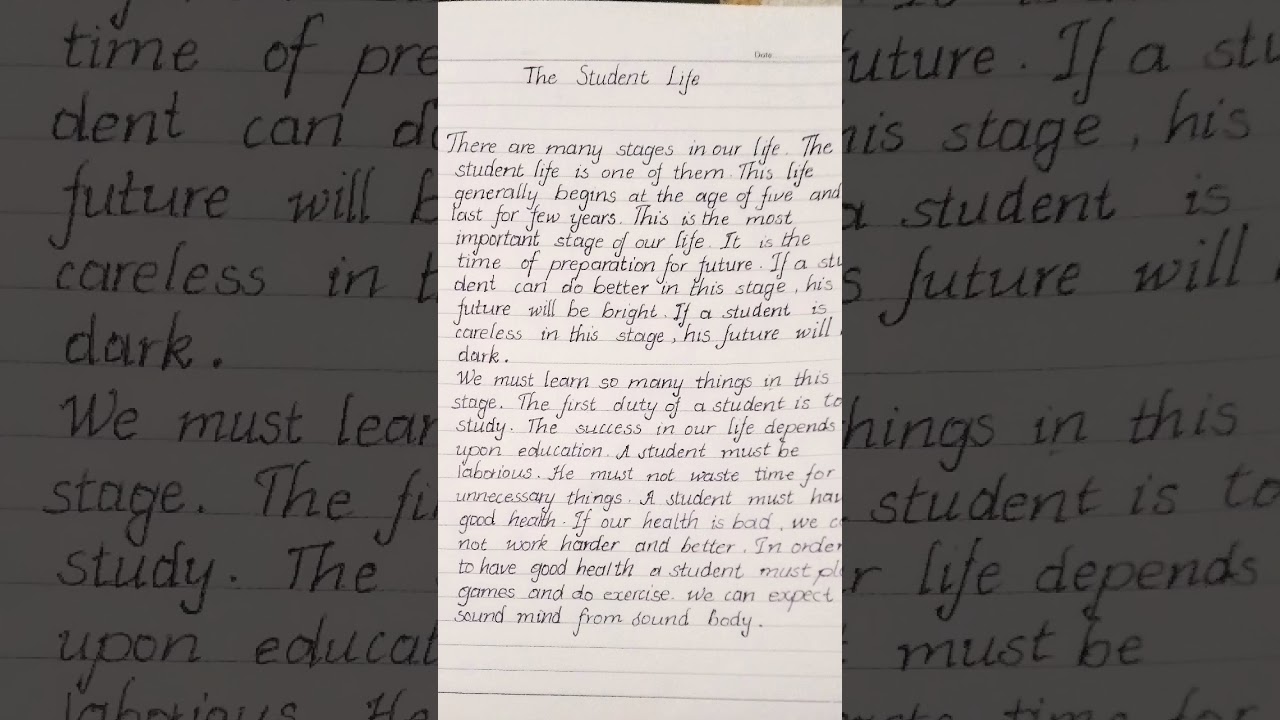 Date
The Student Life
There are many stages in our life. The
student life is one of them. This life
generally begins at the age of five and
last for few years. This is the most
important stage of our life. It is the
time of preparation for future. If a stu
dent can do better in this stage, his
future will be bright. If a student is
careless in this stage, his future will
dark.
We must learn so many things in this
stage. The first duty of a student is to
study. The success in our life depends
upon education. A student must be
laborious. He must not waste time for
unnecessary things. A student must hav
good health. If our health is bad, we c
not work harder and better. In order
to have good health a student must pl
games and do exercise. We can expect
sound mind from sound body.